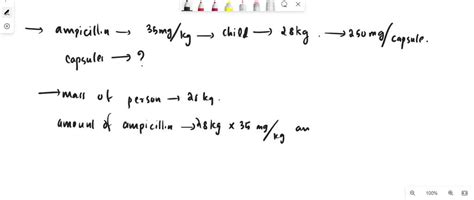 → ampicillin → 35mg/kg → child → 28kg. → 250mg/capsule.
capsules → ?
→ mass of person → 28 kg.
amount of ampicillin → 28kg × 35 mg/kg an
100%